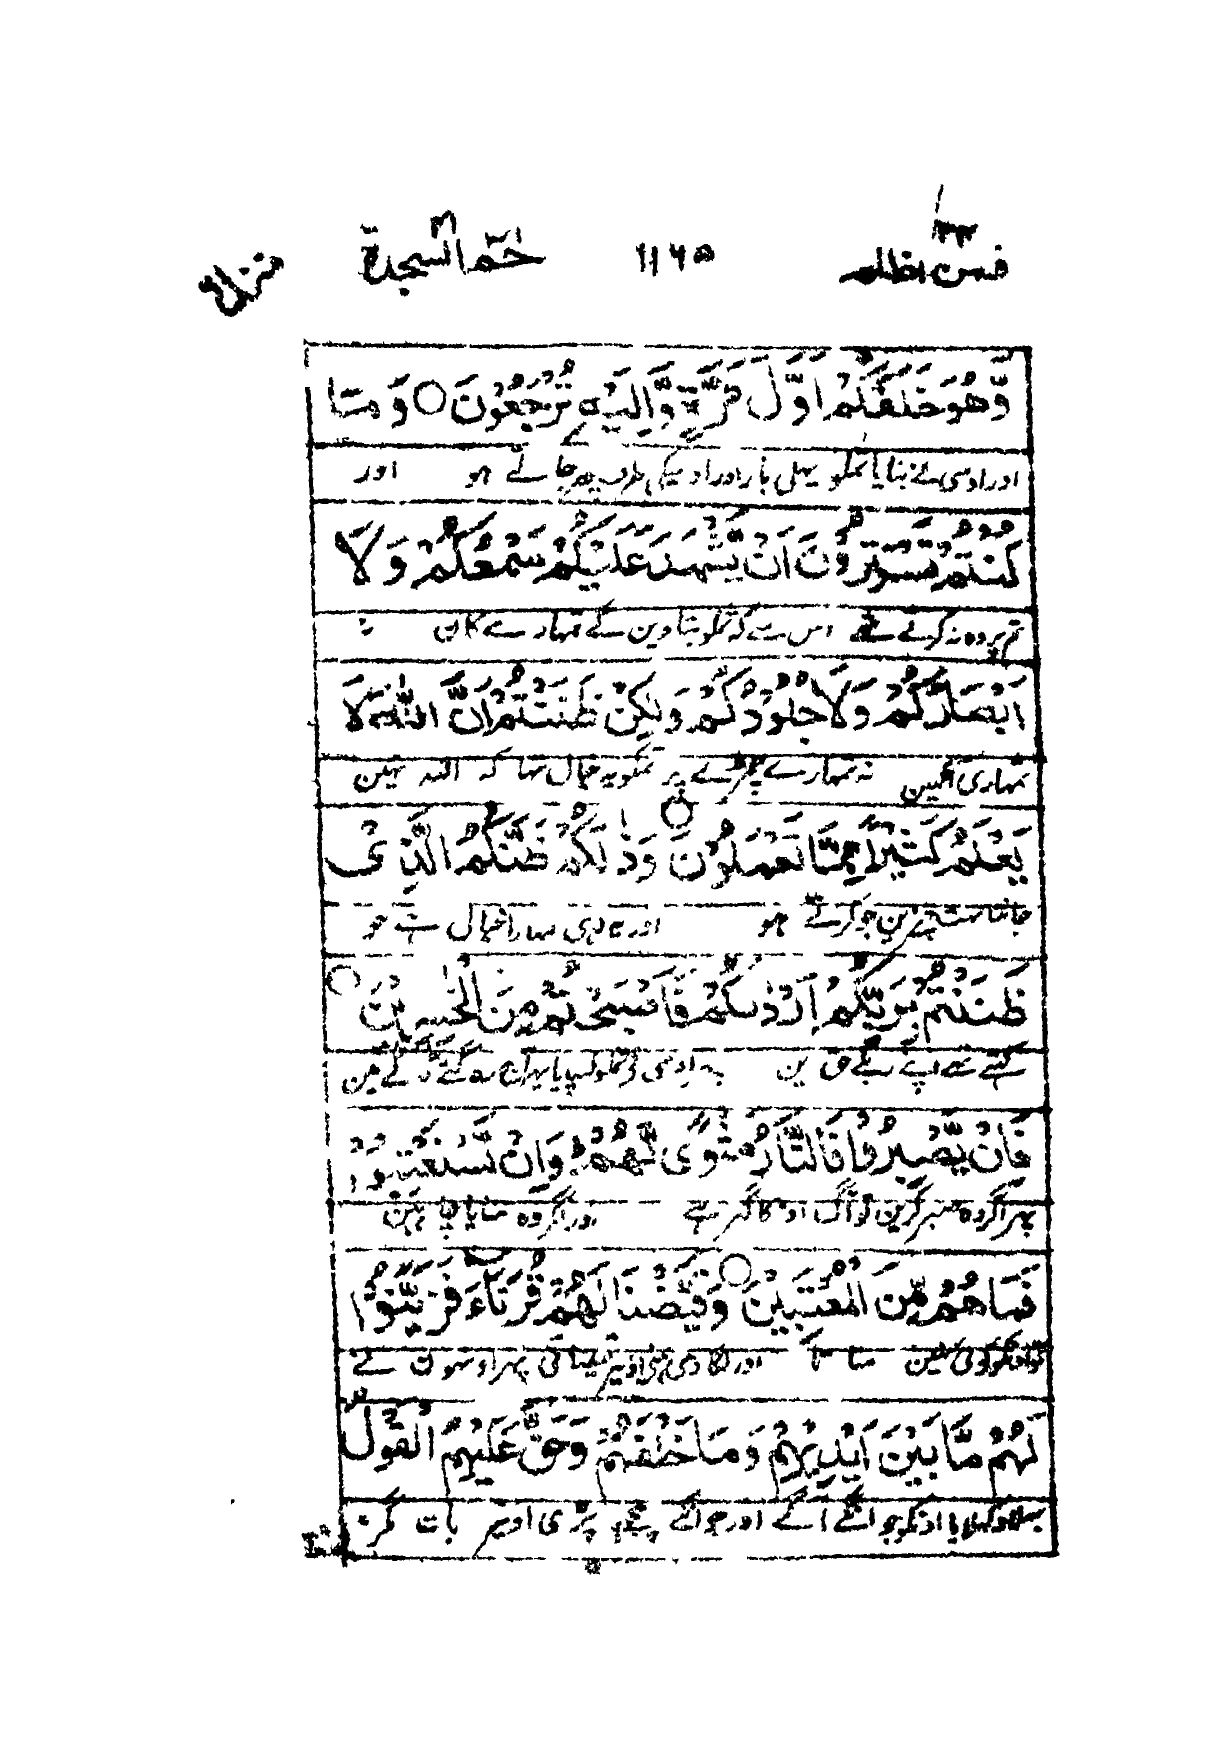 فمن اظلم ٢٤ ١١٦٥ حٰمٓ السجدة ٤١ منزل ٦
وَّهُوَ خَلَقَكُمْ اَوَّلَ مَرَّةٍ وَّاِلَيْهِ تُرْجَعُوْنَ ○ وَمَا
اور اوسی نے بنایا تمکو پہلی بار اور اوسیکی طرف پھر جاتے ہو اور
كُنْتُمْ تَسْتَتِرُوْنَ اَنْ يَّشْهَدَ عَلَيْكُمْ سَمْعُكُمْ وَلَا
تم پردہ نہ کرتے تھے اس سے کہ تمکو بتا دین گے تمہارے کان نہ
اَبْصَارُكُمْ وَلَا جُلُوْدُكُمْ وَلٰكِنْ ظَنَنْتُمْ اَنَّ اللّٰهَ لَا
تمہاری آنکھین نہ تمہارے چمڑے پر تمکو یہ خیال تہا کہ اللہ نہین
يَعْلَمُ كَثِيْرًا مِّمَّا تَعْمَلُوْنَ ○ وَذٰلِكُمْ ظَنُّكُمُ الَّذِيْ
جانتا بہت چیزین جو کرتے ہو اور یہ وہی تمہارا خیال ہے جو
ظَنَنْتُمْ بِرَبِّكُمْ اَرْدٰىكُمْ فَاَصْبَحْتُمْ مِّنَ الْخٰسِرِيْنَ ○
رکھتے تھے اپنے رب کے حق مین اوسی نے تمکو کہپایا پہر آج رہ گئے ٹوٹے مین
فَاِنْ يَّصْبِرُوْا فَالنَّارُ مَثْوًى لَّهُمْ وَاِنْ يَّسْتَعْتِبُوْا
پہر اگر وہ صبر کرین تو آگ اونکا گہر ہے اور اگر وہ منایا چاہین
فَمَا هُمْ مِّنَ الْمُعْتَبِيْنَ ○ وَقَيَّضْنَا لَهُمْ قُرَنَآءَ فَزَيَّنُوْا
تو اونکو کوئی نہین مناتا اور لگا دی ہمنے اونپر تعیناتی پہر اونہون نے
لَهُمْ مَّا بَيْنَ اَيْدِيْهِمْ وَمَا خَلْفَهُمْ وَحَقَّ عَلَيْهِمُ الْقَوْلُ
بہلا دکہلایا اونکو جو اونکے آگے اور جو اونکے پیچھے اور پڑی اونپر بات